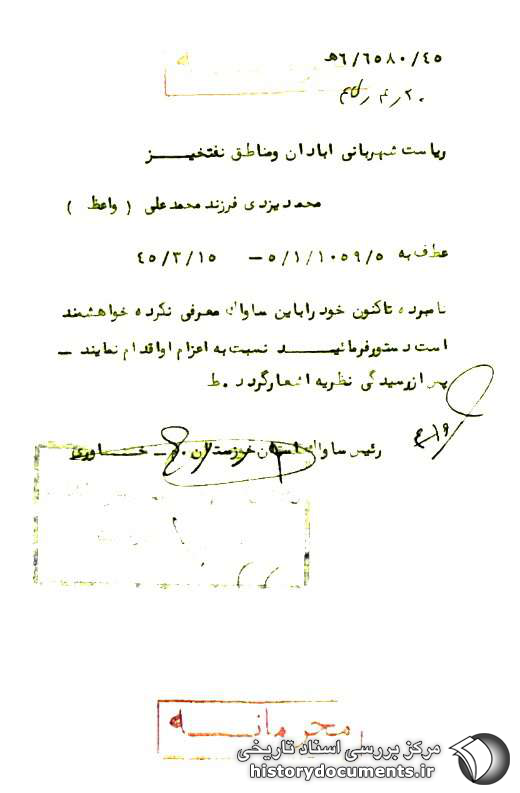 ۶/۶۵۸۰/۴۵ه‍
ریاست شهربانی ابادان ومناطق نفتخیــــز
محمد یزدی فرزند محمدعلی ( واعظ )
عطف به ۵/۱/۱۰۵۹/۵ – ۴۵/۳/۱۵
نامبرده تاکنون خود راباین ساواک معرفی نکرده خواهشمند
است دستورفرمائیـــد نسبت به اعزام اواقدام نمایند –
پس ازرسیدگی نظریه اشعارگردد . ط
رئیس ساواک استان خوزستان . – خــــاوری
محرمانــــه
مرکز بررسی اسناد تاریخی
historydocuments.ir